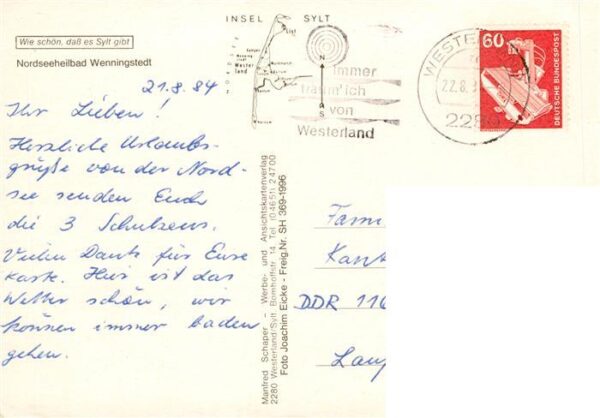 INSEL SYLT
Wie schön, daß es Sylt gibt
Nordseeheilbad Wenningstedt
21.8.84
Ihr Lieben!
Herzliche Urlaubs-
grüße von der Nord-
see senden Euch
die 3 Schulzens.
Vielen Dank für Eure
Karte. Hier ist das
Wetter schön, wir
können immer baden
gehen.
List
Wester
land
N
S
immer
träum' ich
von
Westerland
WESTE
22.8.
2280
60
DEUTSCHE BUNDESPOST
Manfred Schaper - Werbe- und Ansichtskartenverlag
2280 Westerland/Sylt, Bomhoffstr. 14 Tel. (04651) 24700
Foto Joachim Eicke - Freig.Nr. SH 369-1996
Fami
Kant
DDR 116